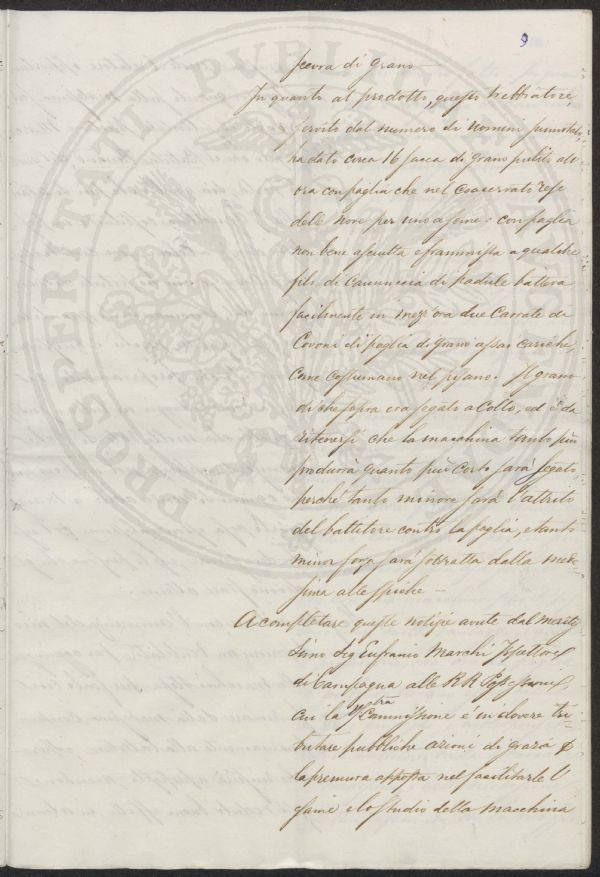 9
scevra di grano
In quanto al prodotto, questo trebbiatore,
servito dal numero di uomini
ha dato circa 16 sacca di grano pulito al
ora con paglia che nel
delle nove per uno a seme e con paglia
non ben asciutta e frammista a qualche
filo di cannuccia di Padule batteva
facilmente in mezz'ora due Carrate da
Covoni di paglia di grano assai cariche,
come costumano nel pisano. Il grano
di che sopra era segato a Collo, ed è da
ritenersi che la macchina tanto più
produrrà quanto più corto sarà segato
perché tanto minore sarà l'attrito
del battitore contro la paglia, e tanto
minor forza sarà sottratta dalla mede-
sima alle spiche —
A completare queste notizie avute dal merity
simo Sig Eufranio Marchi Ispettore
di Campagna alle RR Possessioni,
cui la Vstra Commissione é in dovere tri-
butare pubbliche azioni di grazia p
la premura apposta nel facilitarle l'E
same e lo studio della macchina
PROSPERITATI PVBLICAE